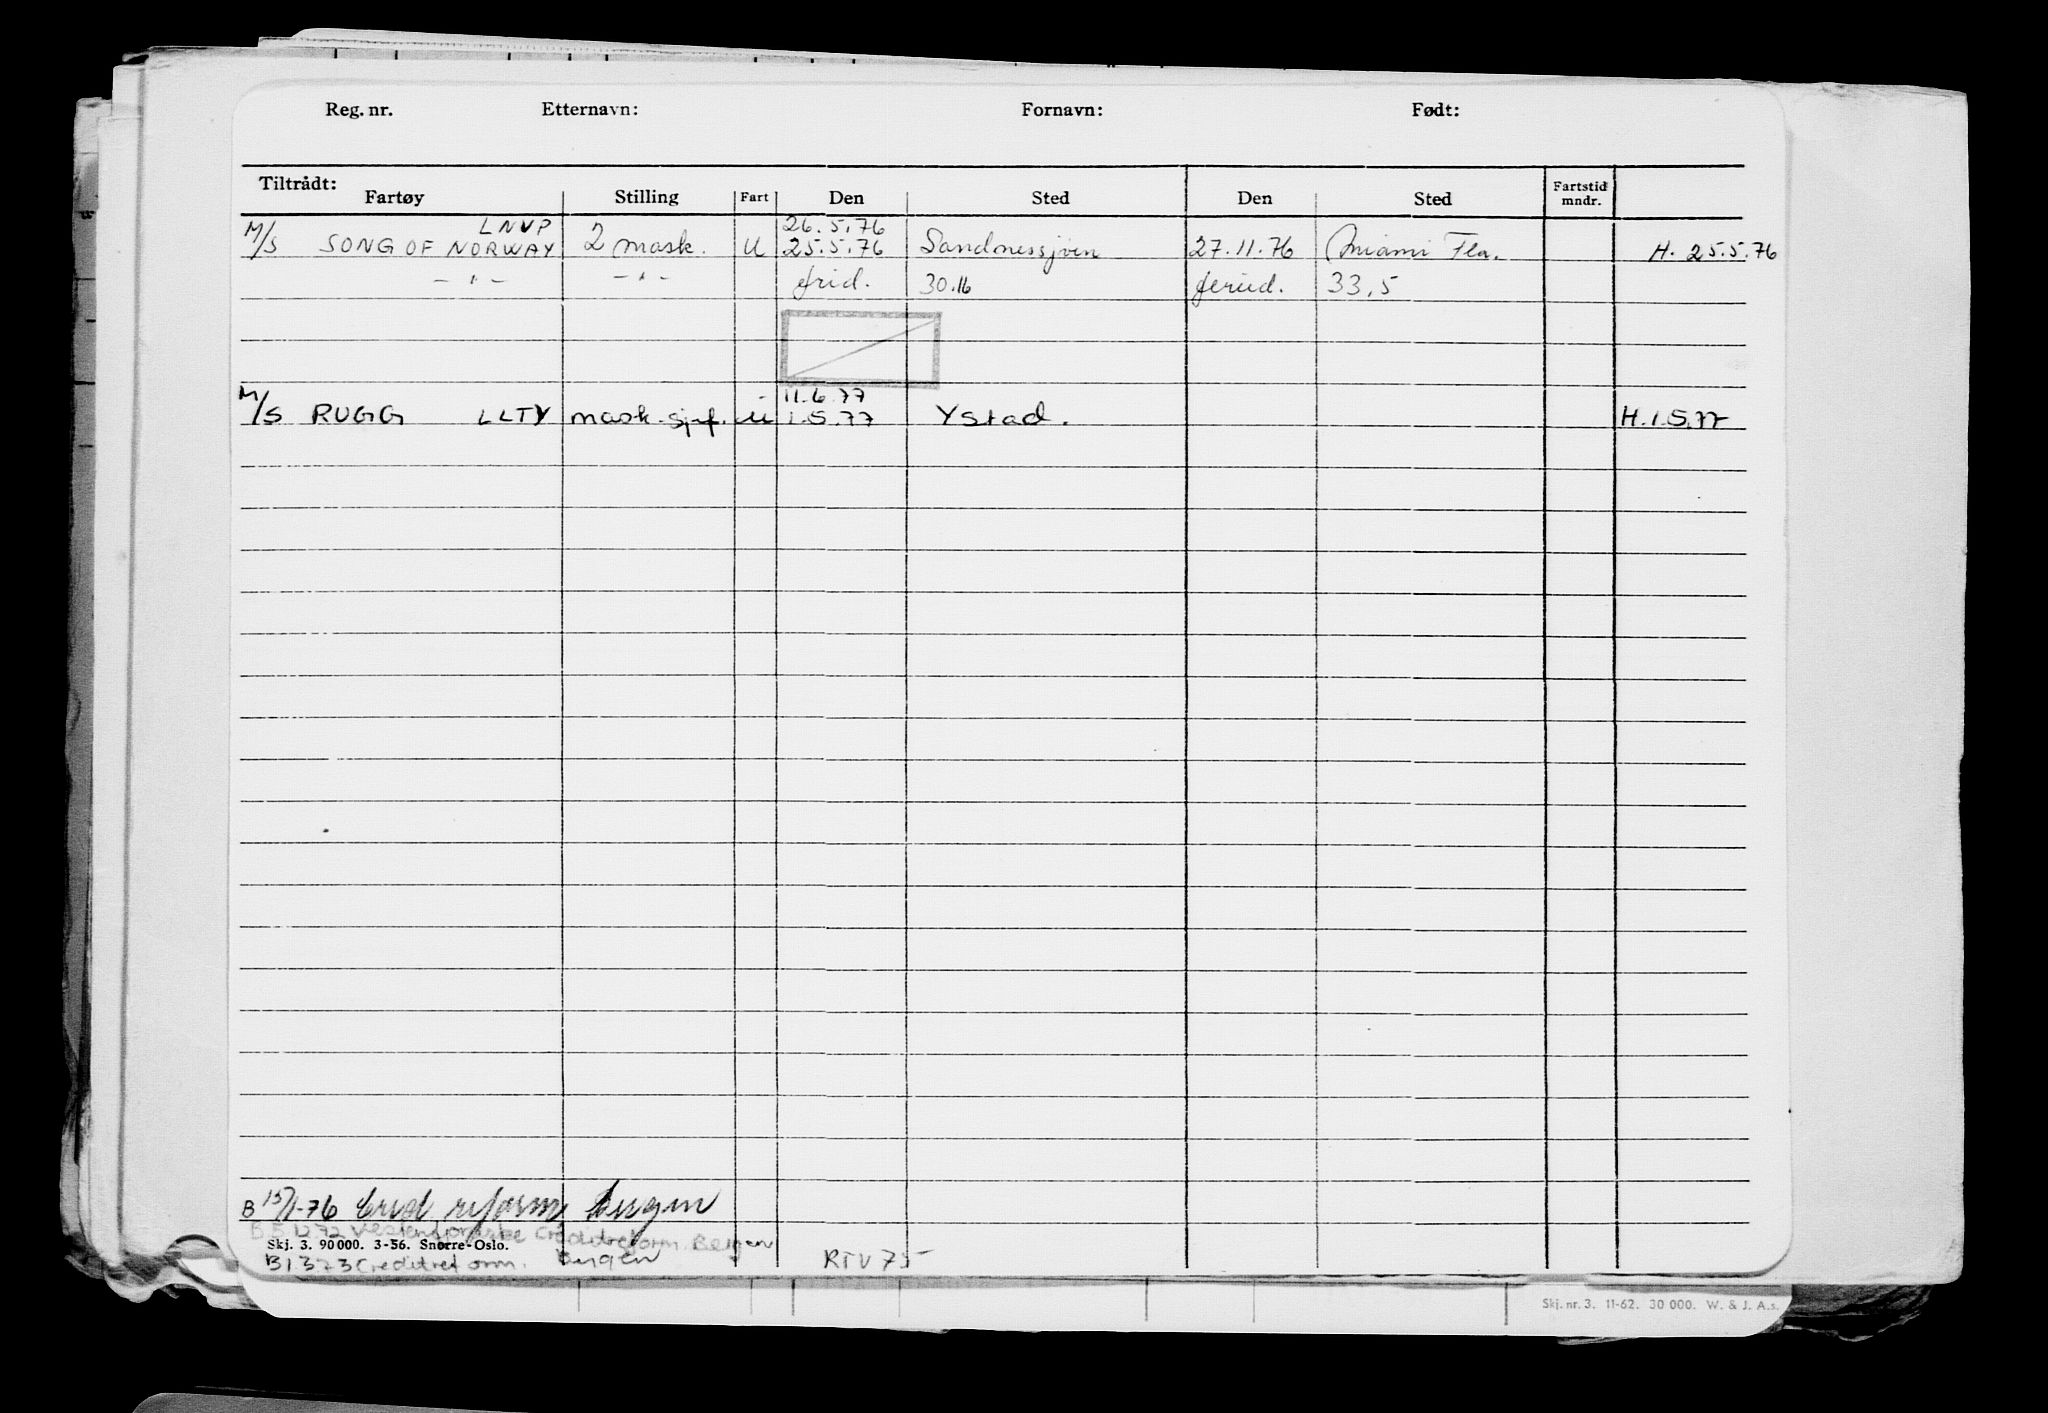 Reg. nr. Etternavn: Fornavn: Født:
Tiltrådt:
Fartøy Stilling Fart Den Sted Den Sted Fartstid mndr.
LNVP 26.5.76
M/S SONG OF NORWAY 2 mask. U 25.5.76 Sandnessjøen 27.11.76 Miami Fla. H. 25.5.76
-"- -"- frid. 30.16 feried. 33,5
11.6.77
M/S RUGG LLTY mask.sjef. U 1.5.77 Ystad. H.1.5.77
B 15/1-76 Cred reform Bergen
Creditreform. Bergen
Skj. 3. 90 000. 3-56. Snorre-Oslo.
B1373 Creditreform. Bergen RTV 75
Skj. nr. 3. 11-62. 30 000. W. & J. A.s.